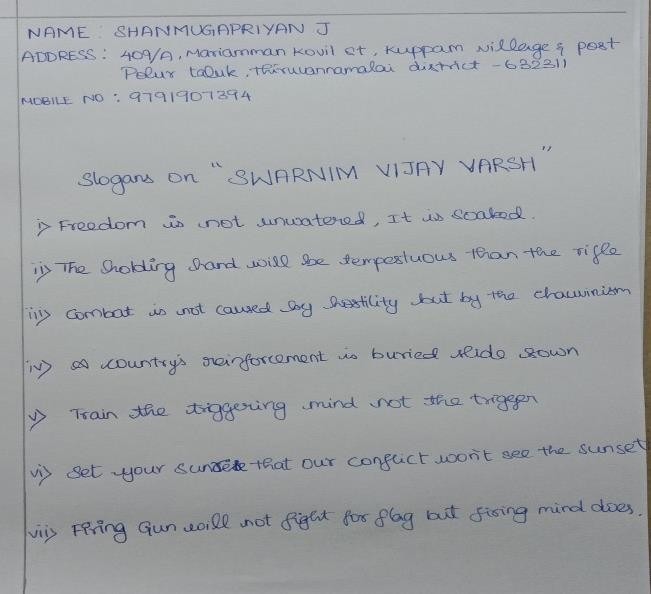 NAME : SHANMUGAPRIYAN J
ADDRESS : 409/A, Mariamman Kovil st, Kuppam village & post
Polur taluk, Thiruvannamalai district - 632311
MOBILE NO : 9791907394
Slogans on "SWARNIM VIJAY VARSH"
i) Freedom is not unwatered, It is soaked.
ii) The holding hand will be tempestuous than the rifle
iii) Combat is not caused by hostility but by the chauvinism
iv) A country's reinforcement is buried
v) Train the triggering mind not the trigger
vi) Set your that our conflict won't see the sunset
vii) Firing Gun will not fight for flag but firing mind does.